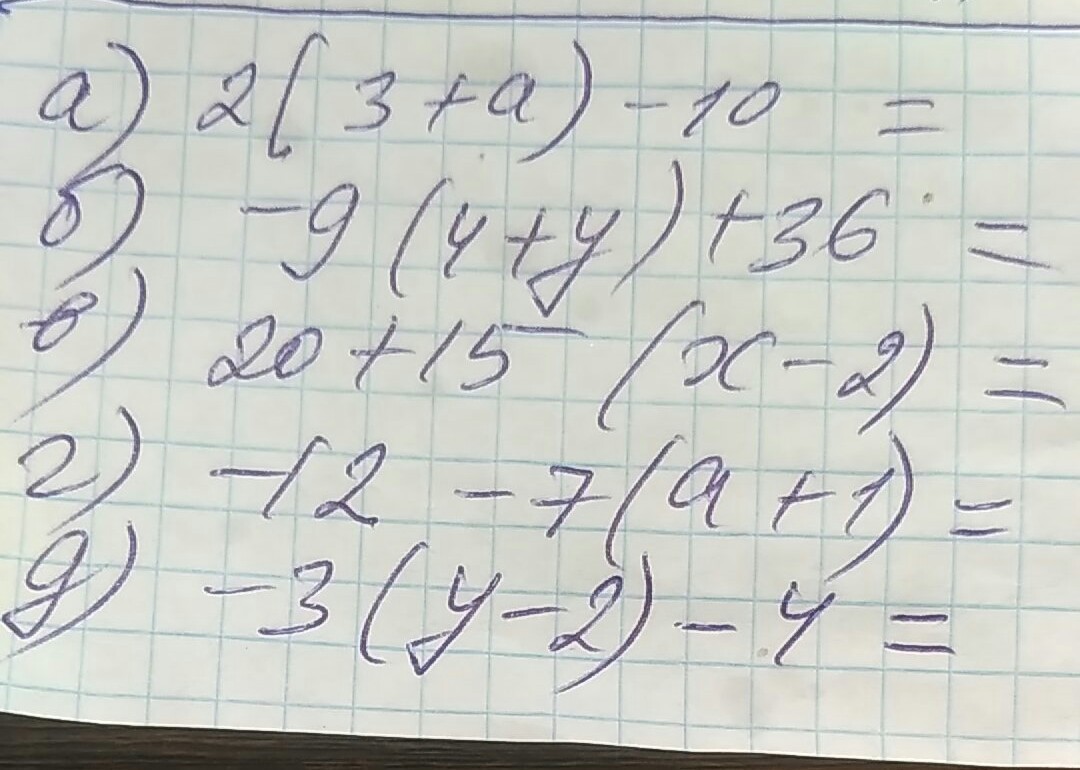 а) 2(3+a)-10 =
б) -9(4+y)+36 =
в) 20+15(x-2) =
г) -12-7(a+1) =
д) -3(y-2)-4 =